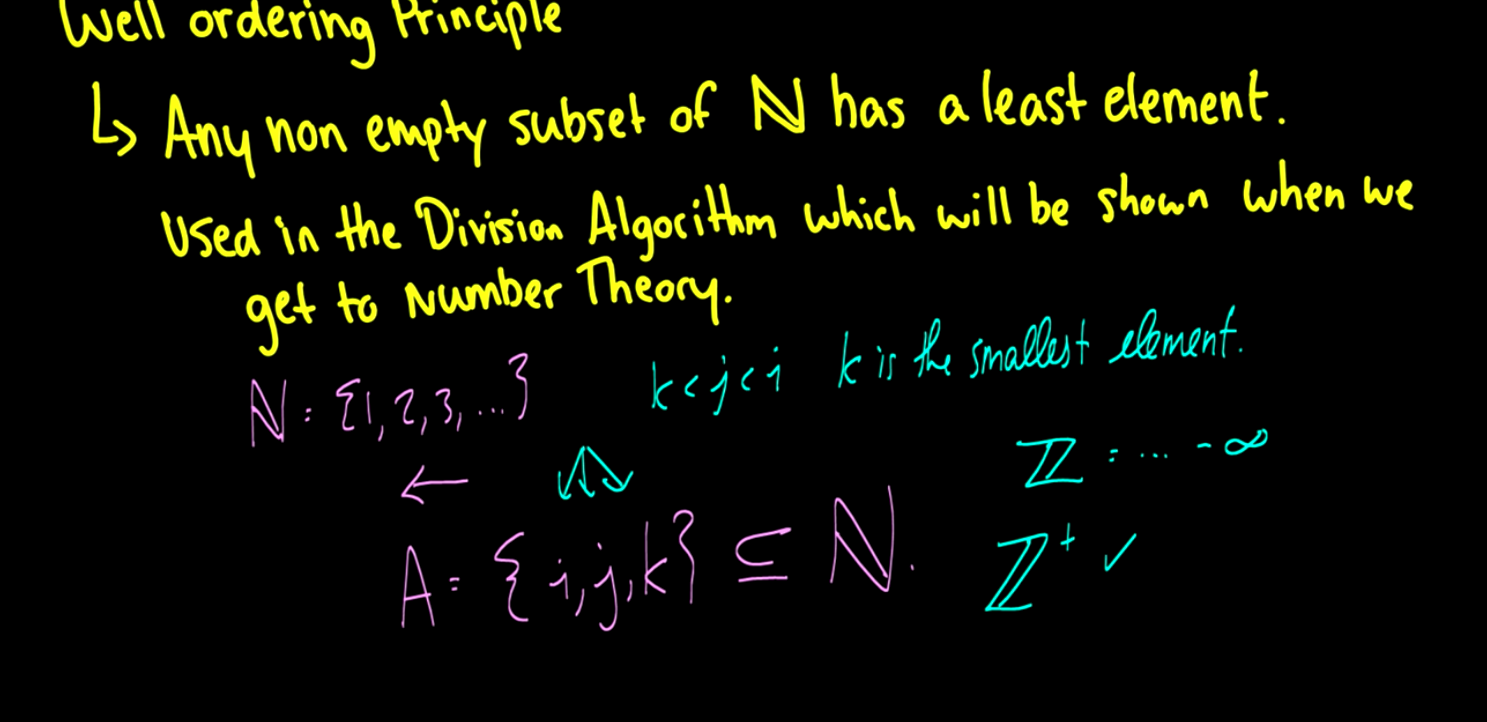 Well ordering Principle
↳ Any non empty subset of ℕ has a least element.
Used in the Division Algorithm which will be shown when we
get to Number Theory.
ℕ = {1, 2, 3, ...} k < j < i k is the smallest element.
← ℤ = ... -∞
A = {i, j, k} ⊆ ℕ. ℤ⁺ ✓